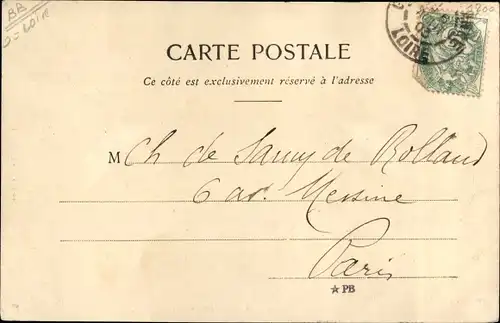 BB
CARTE POSTALE
Ce côté est exclusivement réservé à l'adresse
M Ch de Samy de Rolland
6 av. Messine
Paris
★ PB
LOIRE